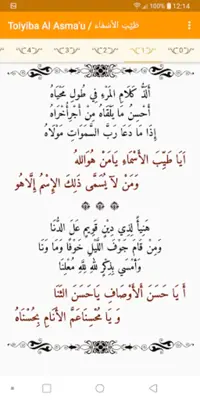 12:14
Toiyiba Al Asma'u / طَيِّبَ الأَسْمَاء
أَلَذُّ كَلَامِ المَرْءِ فِي طُولِ مَحْيَاهُ
أَحْسَنُ مَا يَلْقَاهُ مِنْ أَجْرِأُخْرَاهُ
إِذَا مَا دَعَا رَبَّ السَّمَوَاتِ مَوْلَاهُ
أَيَا طَيِّبَ الْأَسْمَاءِ يَامَنْ هُوَاللهُ
وَمَنْ لَا يُسَمَّى ذَلِكَ الْإِسْمُ إِلَّاهُو
هَنِيأً لِذِي دِينٍ قَوِيمٍ عَلَى الدُّنَا
وَمِنْ قَامَ جَوْفَ اللَّيْلِ خَوْفًا وَمَا وَنَا
وَأَمْسَى بِذِكْرٍ لِلَّهِ مُعْلِنَا
أَ يَا حَسَنَ الْأَوْصَافِ يَاحَسَنَ الثَّنَا
وَ يَا مُحْسِنًاعَمَّ الْأَنَامِ بِحُسْنَاهُ